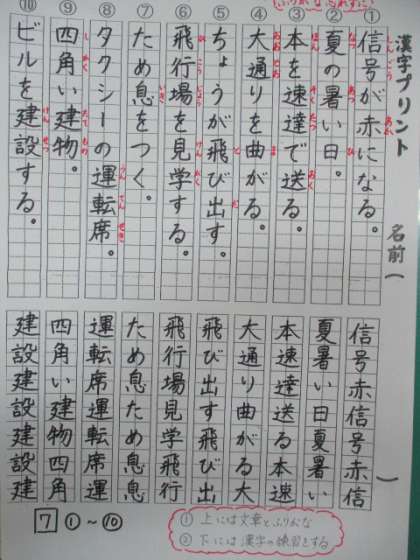 漢字プリント 名前( )
①信号が赤になる。
②夏の暑い日。
③本を速達で送る。
④大通りを曲がる。
⑤ちょうが飛び出す。
⑥飛行場を見学する。
⑦ため息をつく。
⑧タクシーの運転席。
⑨四角い建物。
⑩ビルを建設する。
信号赤信号赤信
夏暑い日夏暑い
本速達送る本速
大通り曲がる大
飛び出す飛び出
飛行場見学飛行
ため息ため息た
運転席運転席運
四角い建物四角
建設建設建設建
7 ①〜⑩
① 上には文章とふりがな
② 下には漢字の練習をする